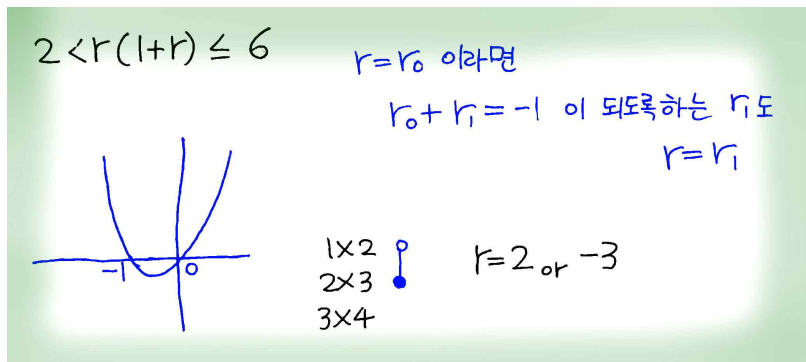 2<r(1+r) ≤ 6
r=r₀ 이라면
r₀+r₁=-1 이 되도록하는 r₁도
r=r₁
-1 0
1×2
2×3
3×4
r=2 or -3